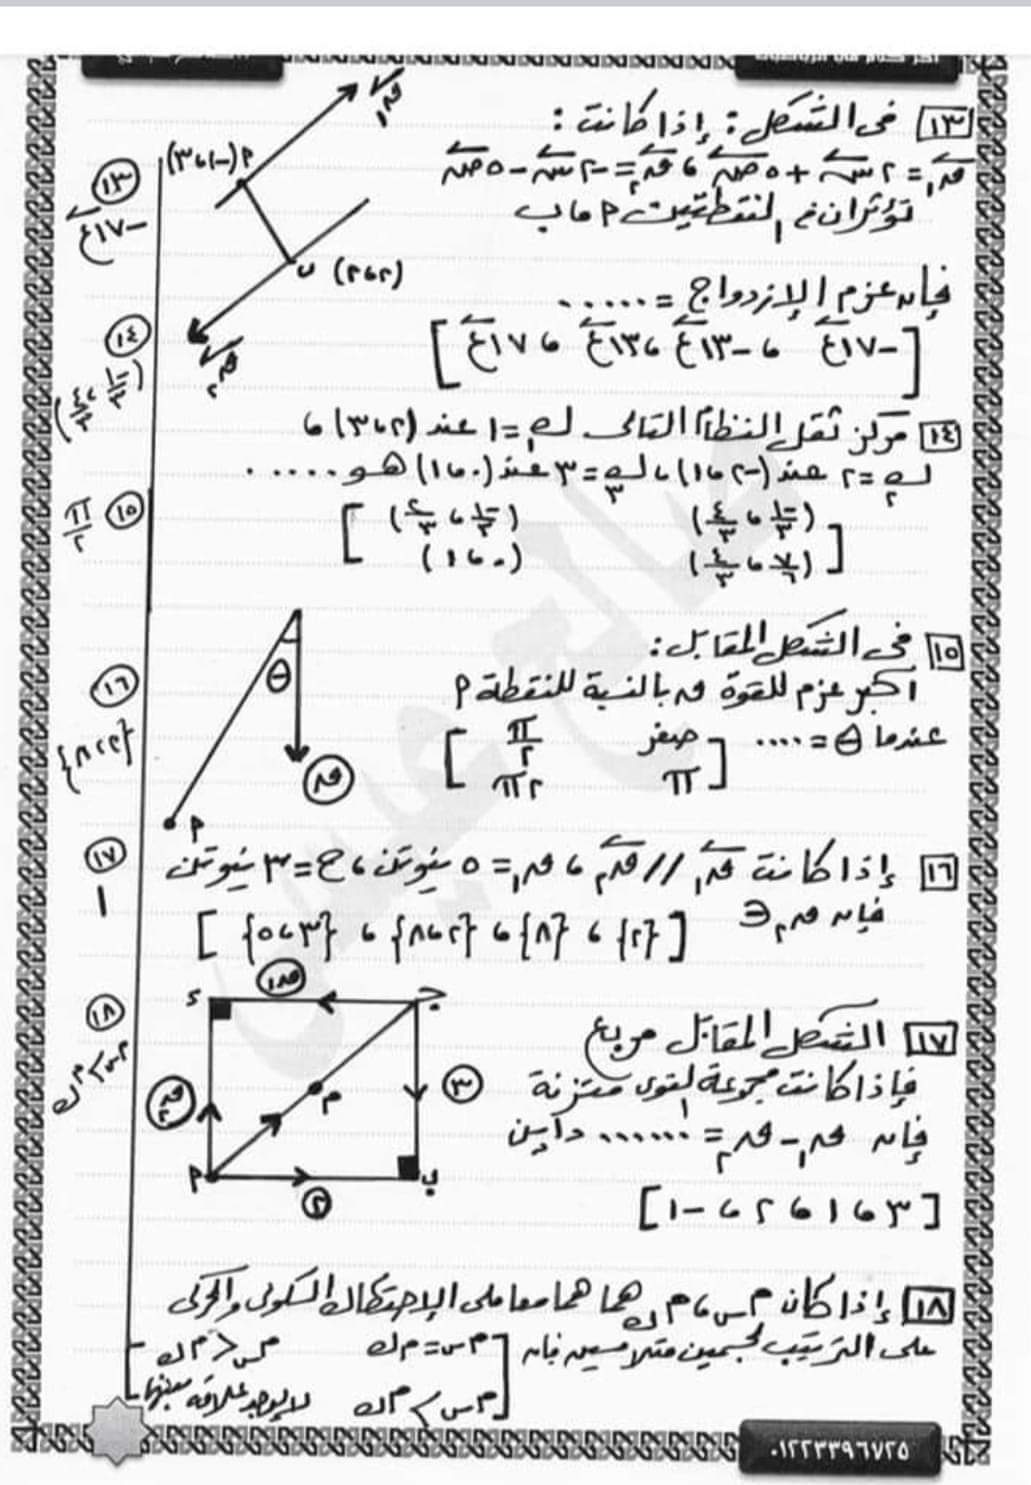 ١٣ فى الشكل: إذا كانت:
ق١ = ٢ س + ٥ ص ، ق٢ = -٢ س - ٥ ص
تؤثران فى النقطتين م، ب
فإن عزم الازدواج = ......
[ -١٧ع ، -١٣ع ، ١٣ع ، ١٧ع ]
م (-١، ٣)
ب (٢، ٢)
ق١
ق٢
١٣
-١٧ع
١٤ مركز ثقل النظام التالى ك١ = ١ عند (٢، ٣) ،
ك٢ = ٢ عند (-٢، ١) ، ك٣ = ٣ عند (٠، ١) هو .....
[ (-١/٣ ، ٤/٣) (-١/٣ ، ٢/٣)
(٧/٦ ، ٤/٣) (٠، ١) ]
١٤
(-١/٣ ، ٤/٣)
١٥ فى الشكل المقابل:
أكبر عزم للقوة ق بالنسبة للنقطة م
عندما θ = .... [ صفر π/٢
π ٢π ]
θ
ق
م
١٥
π/٢
١٦ إذا كانت ق١ // ق٢ ، ق١ = ٥ نيوتن ، ح = ٣ نيوتن
فإن ق٢ ∈
[ {٢} ، {٨} ، {٢، ٨} ، {٣، ٥} ]
١٦
{٢، ٨}
١٧ الشكل المقابل مربع
فإذا كانت مجموعة القوى متزنة
فإن ق١ - ق٢ = ...... داين
[ ٣ ، ١ ، ٢ ، -١ ]
ء ق١ ج
ق٢ م ٣
م ٢ ب
١٧
١
١٨ إذا كان م س ، م ك هما معاملى الاحتكاك السكونى والحركى
على الترتيب لجسمين متلامسين فإن [ م س = م ك م س < م ك
م س > م ك لا يوجد علاقة بينهما
١٨
م س > م ك
٠١٢٢٣٣٩٦٧٢٥